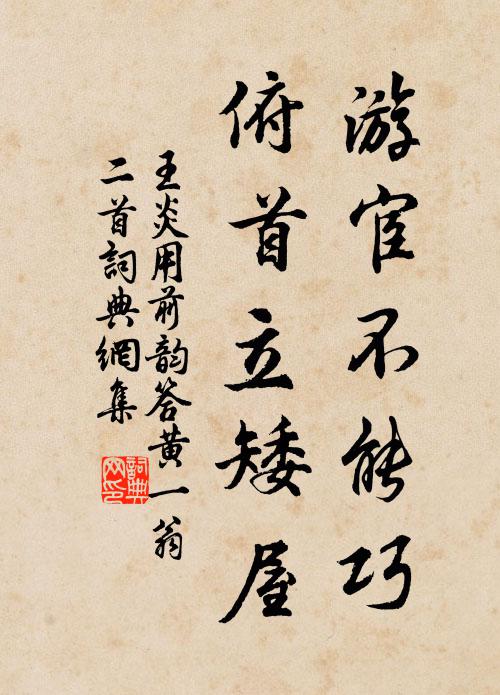 游宦不能巧
俯首立矮屋
王炎用前韵答黄一翁
二首詞典網集
詞典網印